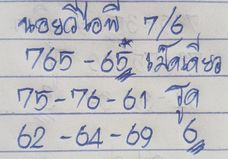 นอยวีไอพี 7/6
765 - 65* เม็ดเดียว
75 - 76 - 61 รูด
62 - 64 - 69 6